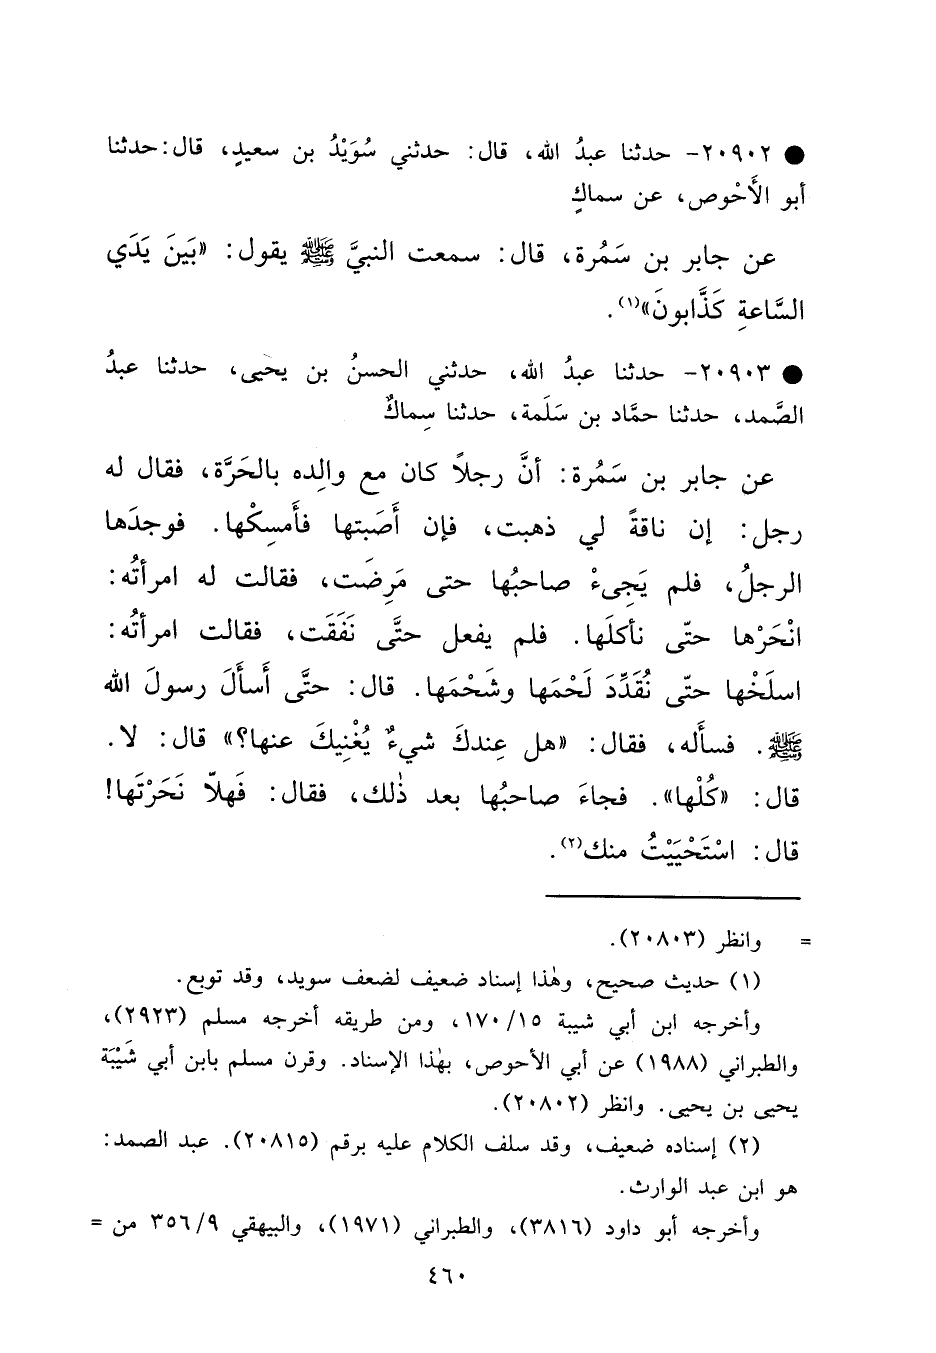 ● ٢٠٩٠٢- حدثنا عبدُ الله، قال: حدثني سُوَيْدُ بن سعيدٍ، قال: حدثنا
أبو الأَحْوص، عن سماكٍ
عن جابر بن سَمُرة، قال: سمعت النبيَّ ﷺ يقول: «بَينَ يَدَي
السَّاعةِ كَذَّابونَ»(١).
● ٢٠٩٠٣- حدثنا عبدُ الله، حدثني الحسنُ بن يحيى، حدثنا عبدُ
الصَّمد، حدثنا حمَّاد بن سَلَمة، حدثنا سِماكٌ
عن جابر بن سَمُرة: أنَّ رجلاً كان مع والِده بالحَرَّة، فقال له
رجل: إن ناقةً لي ذهبت، فإن أَصَبتها فأَمسِكْها. فوجدَها
الرجلُ، فلم يَجِىءْ صاحبُها حتى مَرِضَت، فقالت له امرأتُه:
انْحَرْها حتّى نأكلَها. فلم يفعل حتَّى نَفَقَت، فقالت امرأتُه:
اسلَخْها حتّى نُقَدِّدَ لَحْمَها وشَحْمَها. قال: حتَّى أَسأَلَ رسولَ الله
ﷺ. فسأَله، فقال: «هل عِندكَ شيءٌ يُغْنِيكَ عنها؟» قال: لا.
قال: «كُلْها». فجاءَ صاحبُها بعد ذٰلك، فقال: فَهلاّ نَحَرْتَها!
قال: اسْتَحْيَيْتُ منك(٢).
= وانظر (٢٠٨٠٣).
(١) حديث صحيح، وهٰذا إسناد ضعيف لضعف سويد، وقد توبع.
وأخرجه ابن أبي شيبة ١٧٠/١٥، ومن طريقه أخرجه مسلم (٢٩٢٣)،
والطبراني (١٩٨٨) عن أبي الأحوص، بهٰذا الإسناد. وقرن مسلم بابن أبي شَيْبَة
يحيى بن يحيى. وانظر (٢٠٨٠٢).
(٢) إسناده ضعيف، وقد سلف الكلام عليه برقم (٢٠٨١٥). عبد الصمد:
هو ابن عبد الوارث.
وأخرجه أبو داود (٣٨١٦)، والطبراني (١٩٧١)، والبيهقي ٣٥٦/٩ من =
٤٦٠